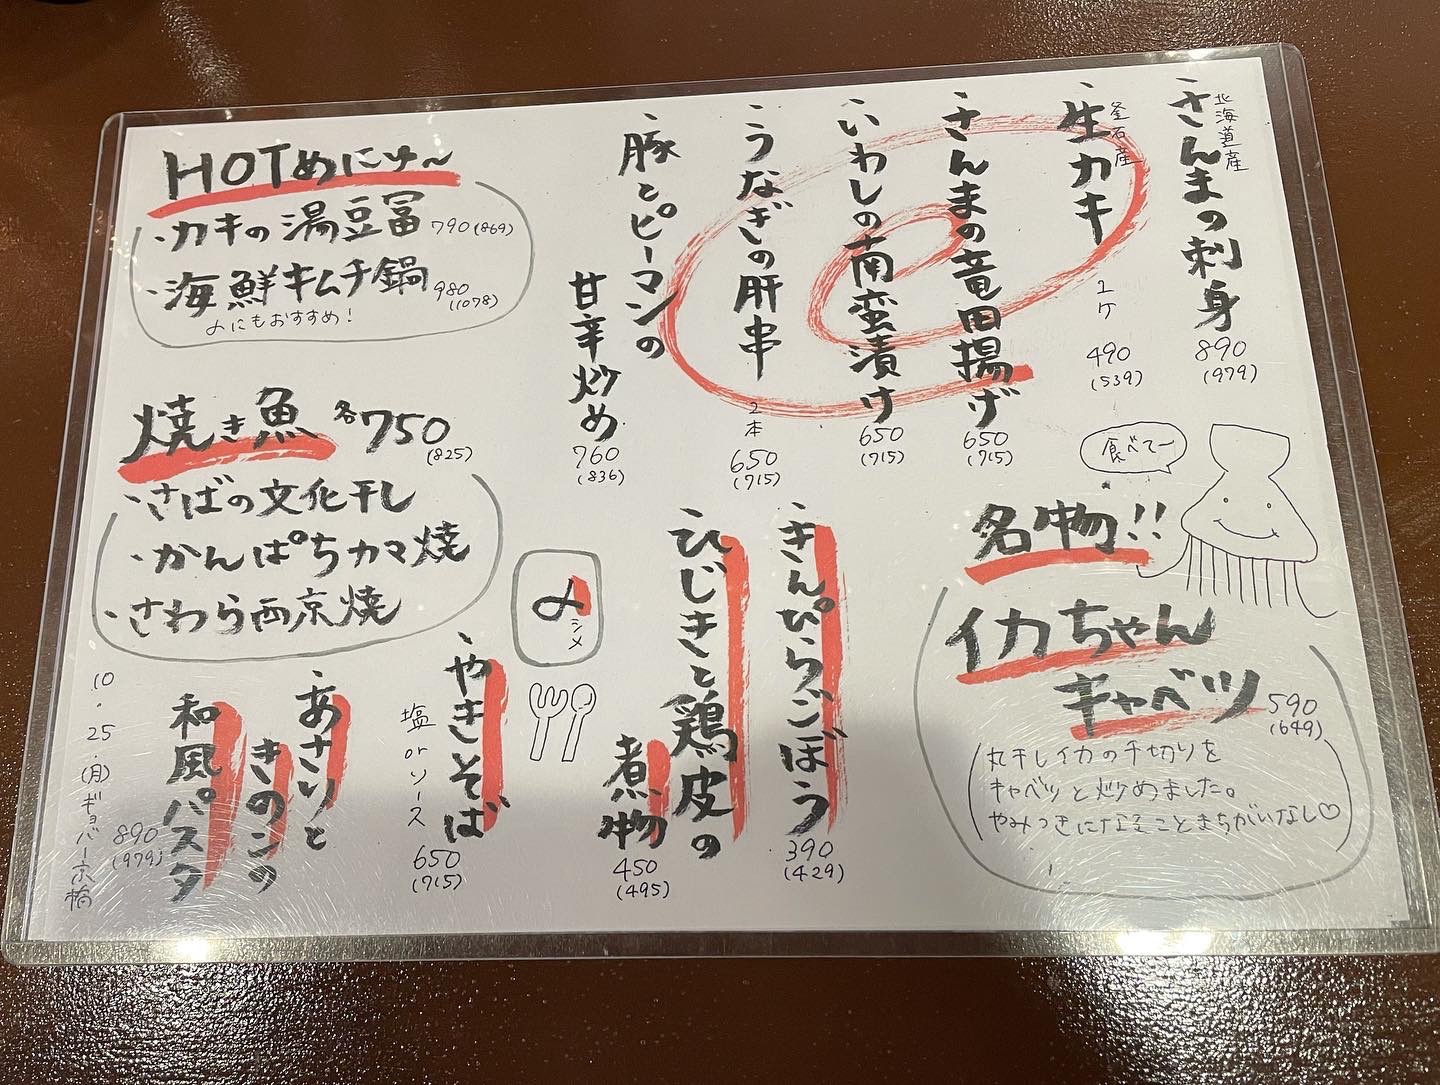 北海道産
・さんまの刺身
890
(979)
釜石産
・生カキ
1ケ
490
(539)
・さんまの竜田揚げ
650
(715)
・いわしの南蛮漬け
650
(715)
・うなぎの肝串
2本
650
(715)
・豚とピーマンの
甘辛炒め
760
(836)
HOTめにゅ～
・カキの湯豆冨 790(869)
・海鮮キムチ鍋 980
(1078)
〆にもおすすめ!
焼き魚 各750
(825)
・さばの文化干し
・かんぱちカマ焼
・さわら西京焼
食べてー
名物!!
イカちゃん
キャベツ 590
(649)
丸干しイカの千切りを
キャベツと炒めました。
やみつきになることまちがいなし♡
・きんぴらごぼう
390
(429)
・ひじきと鶏皮の
煮物
450
(495)
〆
シメ
・やきそば
塩orソース
650
(715)
・あさりと
きのこの
和風パスタ
890
(979)
10.25.(月)ギョバー京橋